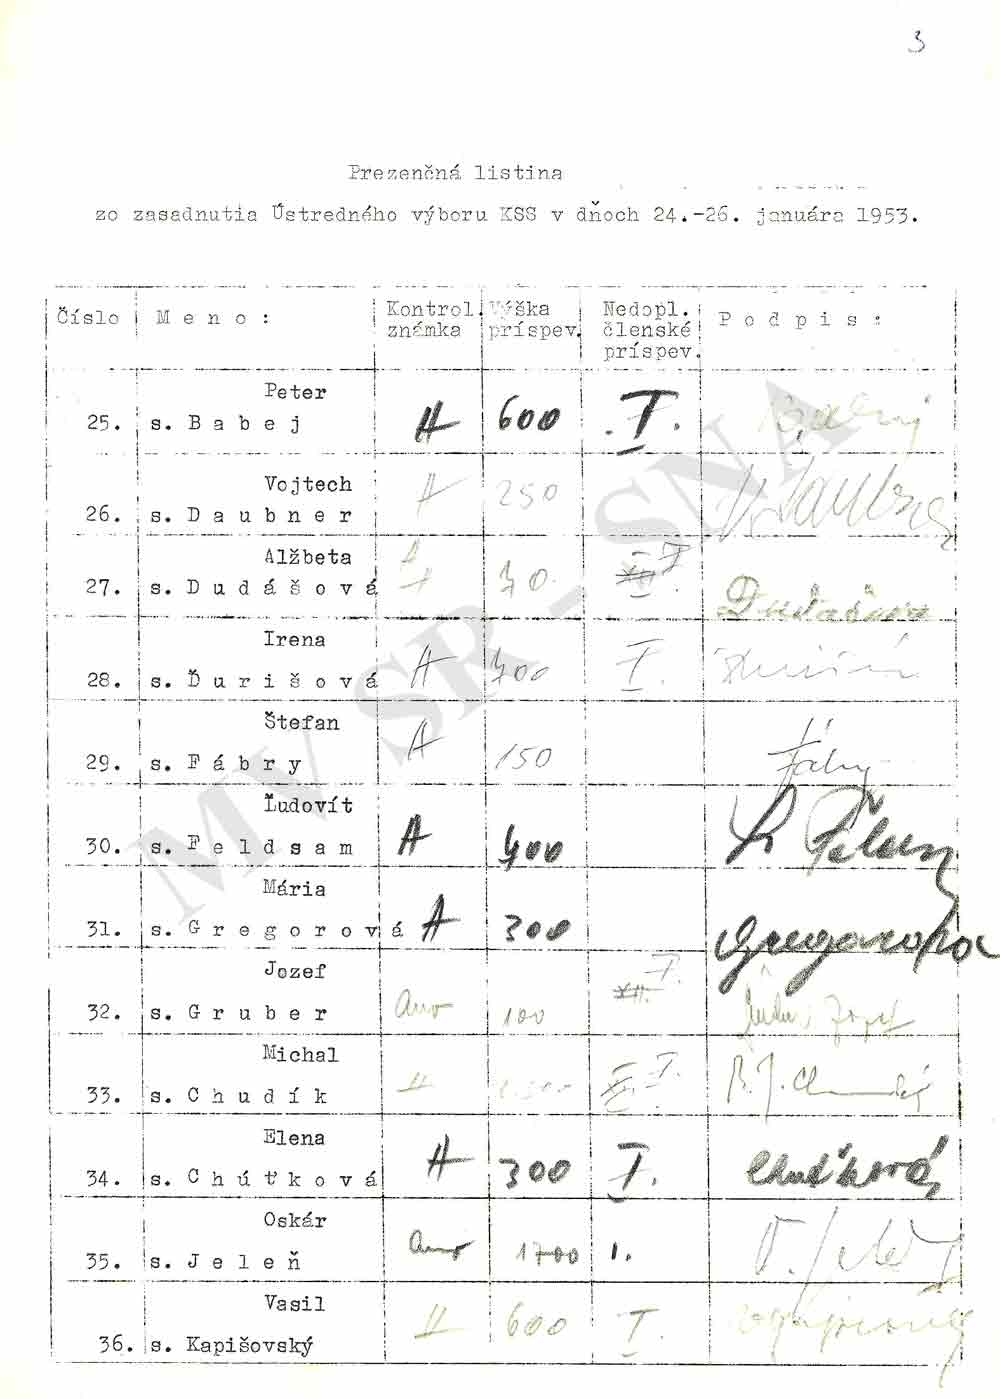 3
Prezenčná listina
zo zasadnutia Ústredného výboru KSS v dňoch 24.-26. januára 1953.
Číslo M e n o : Kontrol. známka Výška príspev. Nedopl. členské príspev. P o d p i s :
Peter
25. s. B a b e j A 600 I.
Vojtech
26. s. D a u b n e r A 250 Daubner
Alžbeta
27. s. D u d á š o v á A 70 XII. I. Dudášova
Irena
28. s. Ď u r i š o v á A 400 I.
Štefan
29. s. F á b r y A 150 Fábry
Ľudovít
30. s. F e l d s a m A 400
Mária
31. s. G r e g o r o v á A 300 Gregorova
Jozef
32. s. G r u b e r Ano 100 XII. I. Jozef
Michal
33. s. C h u d í k A XII. I.
Elena
34. s. C h ú ť k o v á A 300 I. Chuťková
Oskár
35. s. J e l e ň Ano 1700 I. O. Jeleň
Vasil
36. s. Kapišovský A 600 I.
MV SR - SNA